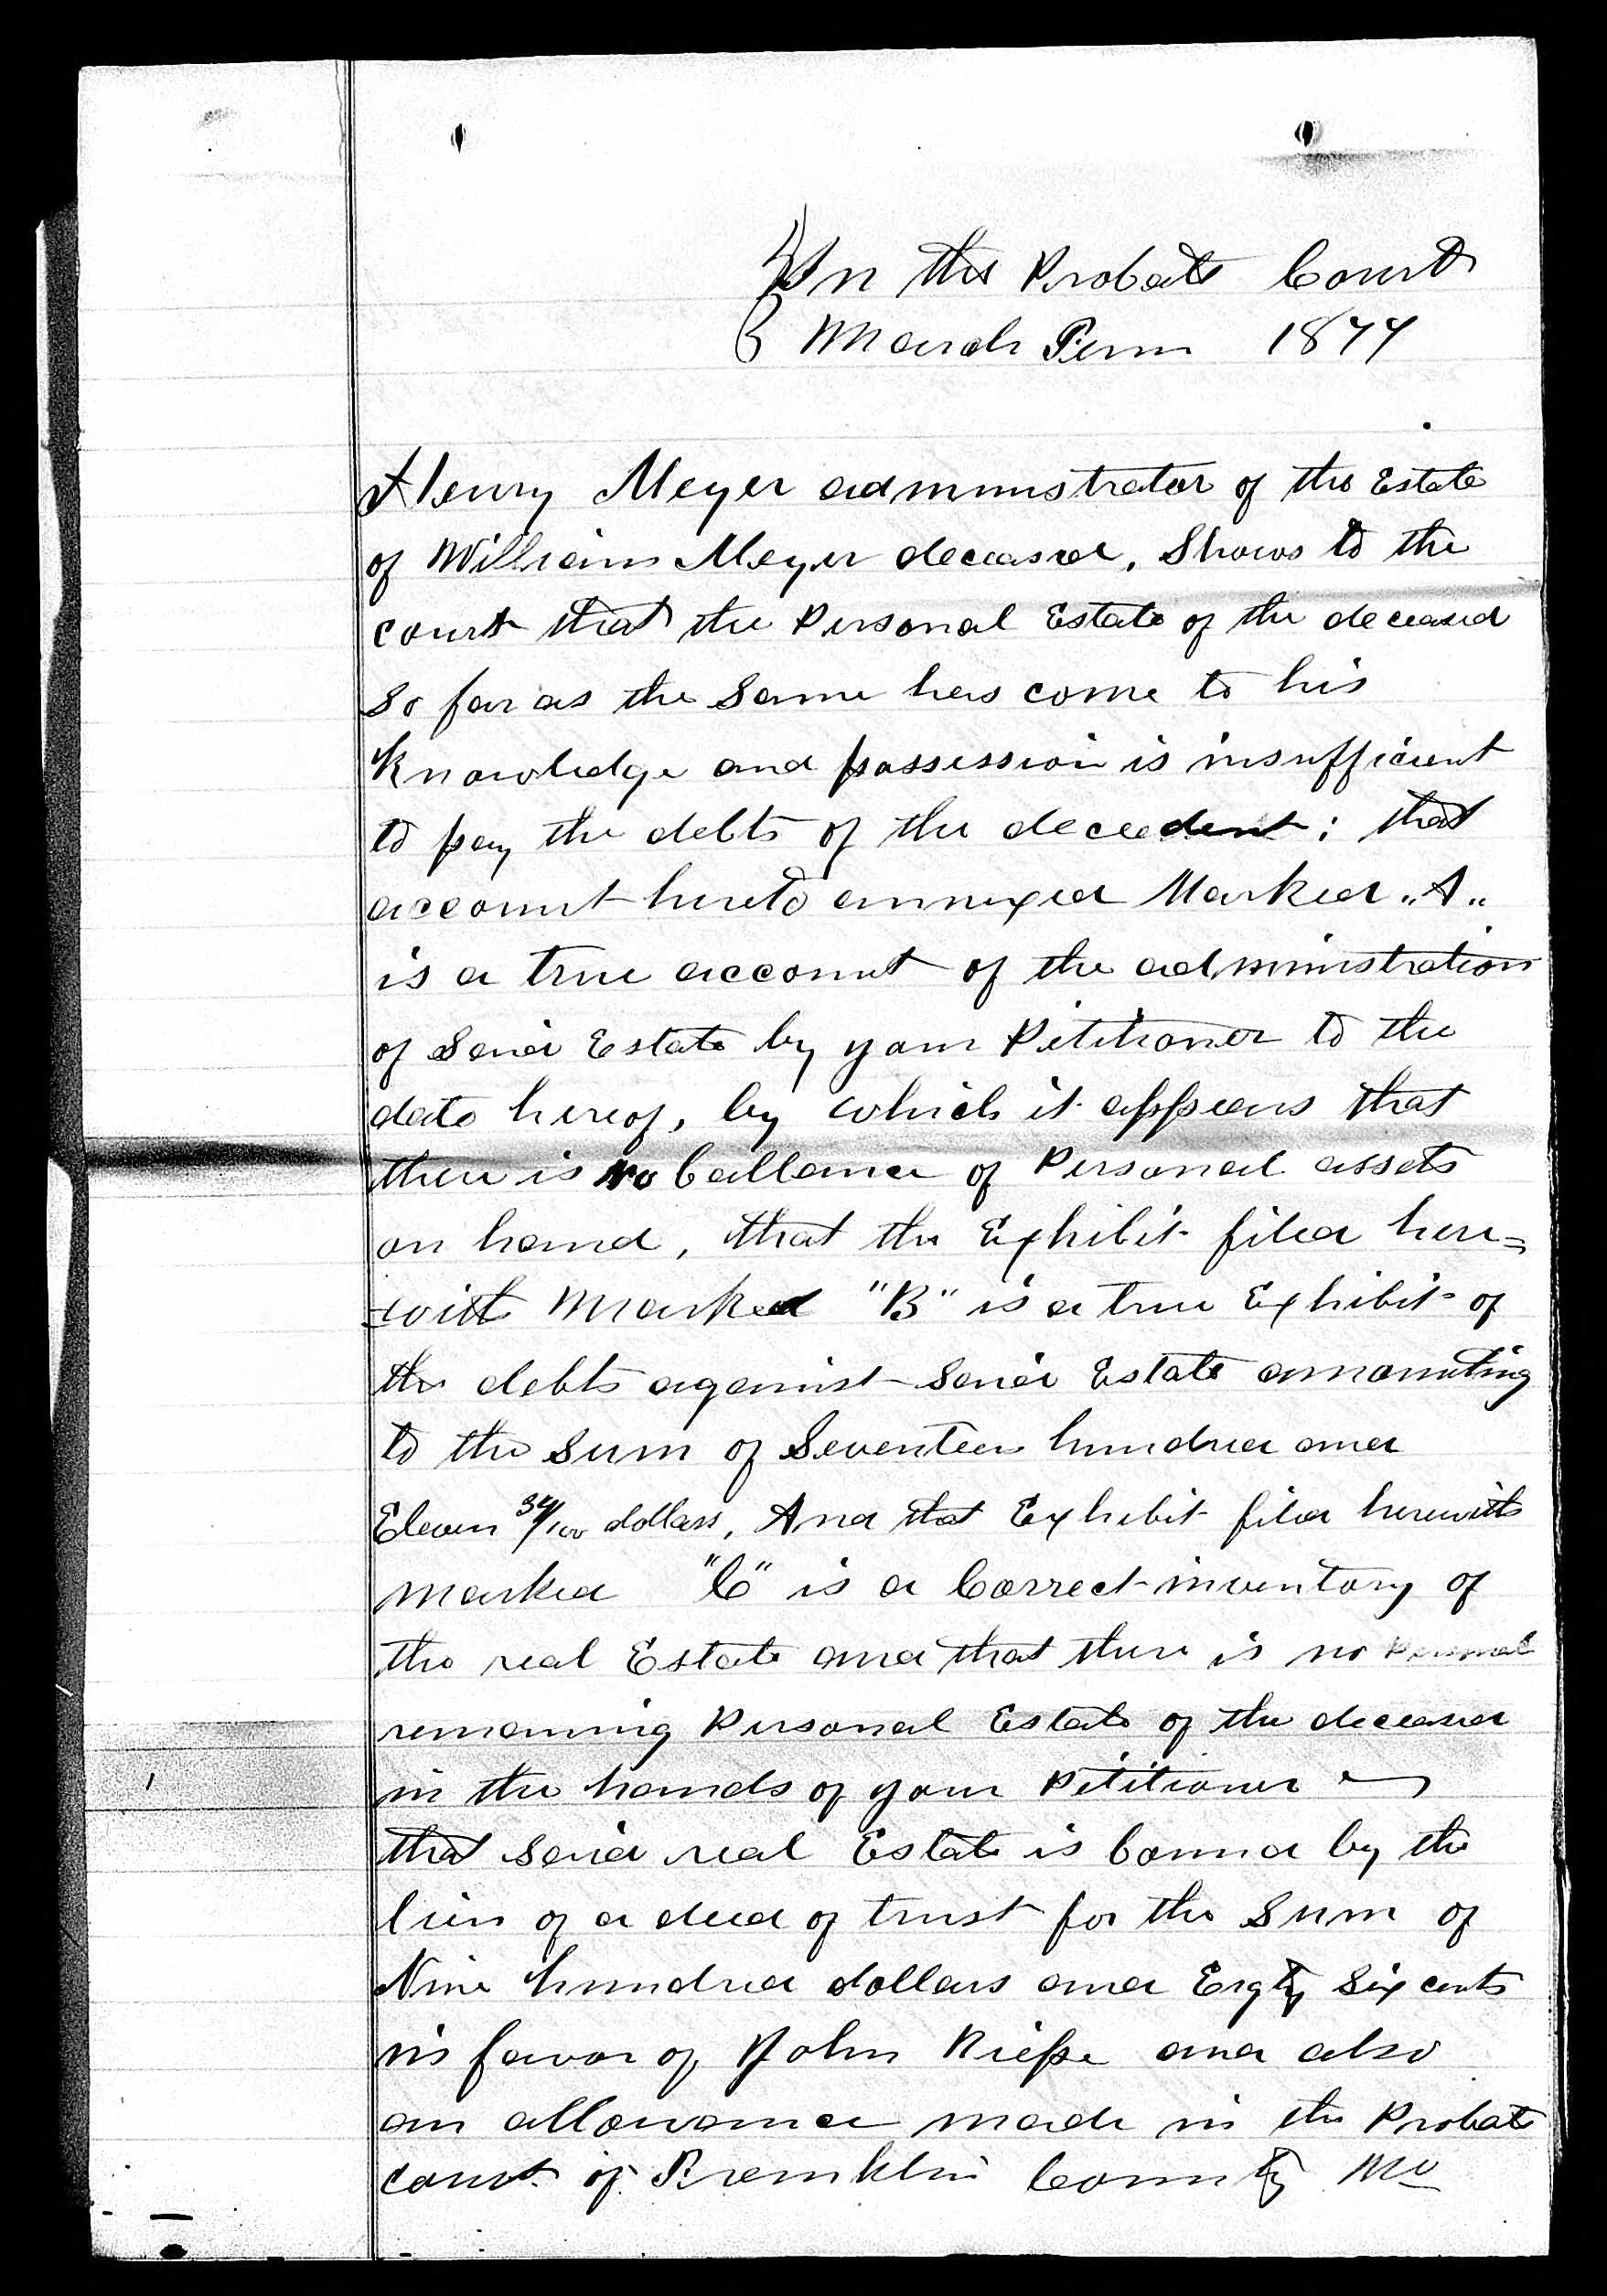 In the Probate Court
March Term 1877
Henry Meyer administrator of the Estate
of William Meyer deceased, Shows to the
court that the Personal Estate of the deceased
so far as the same has come to his
Knowledge and possession is insufficient
to pay the debts of the decedent; that
account hereto annexed Marked "A"
is a true account of the administration
of said Estate by your Petitioner to the
date hereof, by which it appears that
there is no ballance of Personal assets
on hand, that the Exhibit filed here=
=with Marked "B" is a true Exhibit of
the debts against said Estate amounting
to the sum of Seventeen hundred and
Eleven 34/100 dollars, And that Exhibit filed herewith
marked "C" is a Correct inventory of
the real Estate and that there is no Personal
remaining Personal Estate of the deceased
in the hands of your Petitioner
that said real Estate is bound by the
lien of a deed of trust for the Sum of
Nine hundred dollars and Eigty Six cents
in favor of John and also
an allowance made in the Probate
court of Franklin County Mo